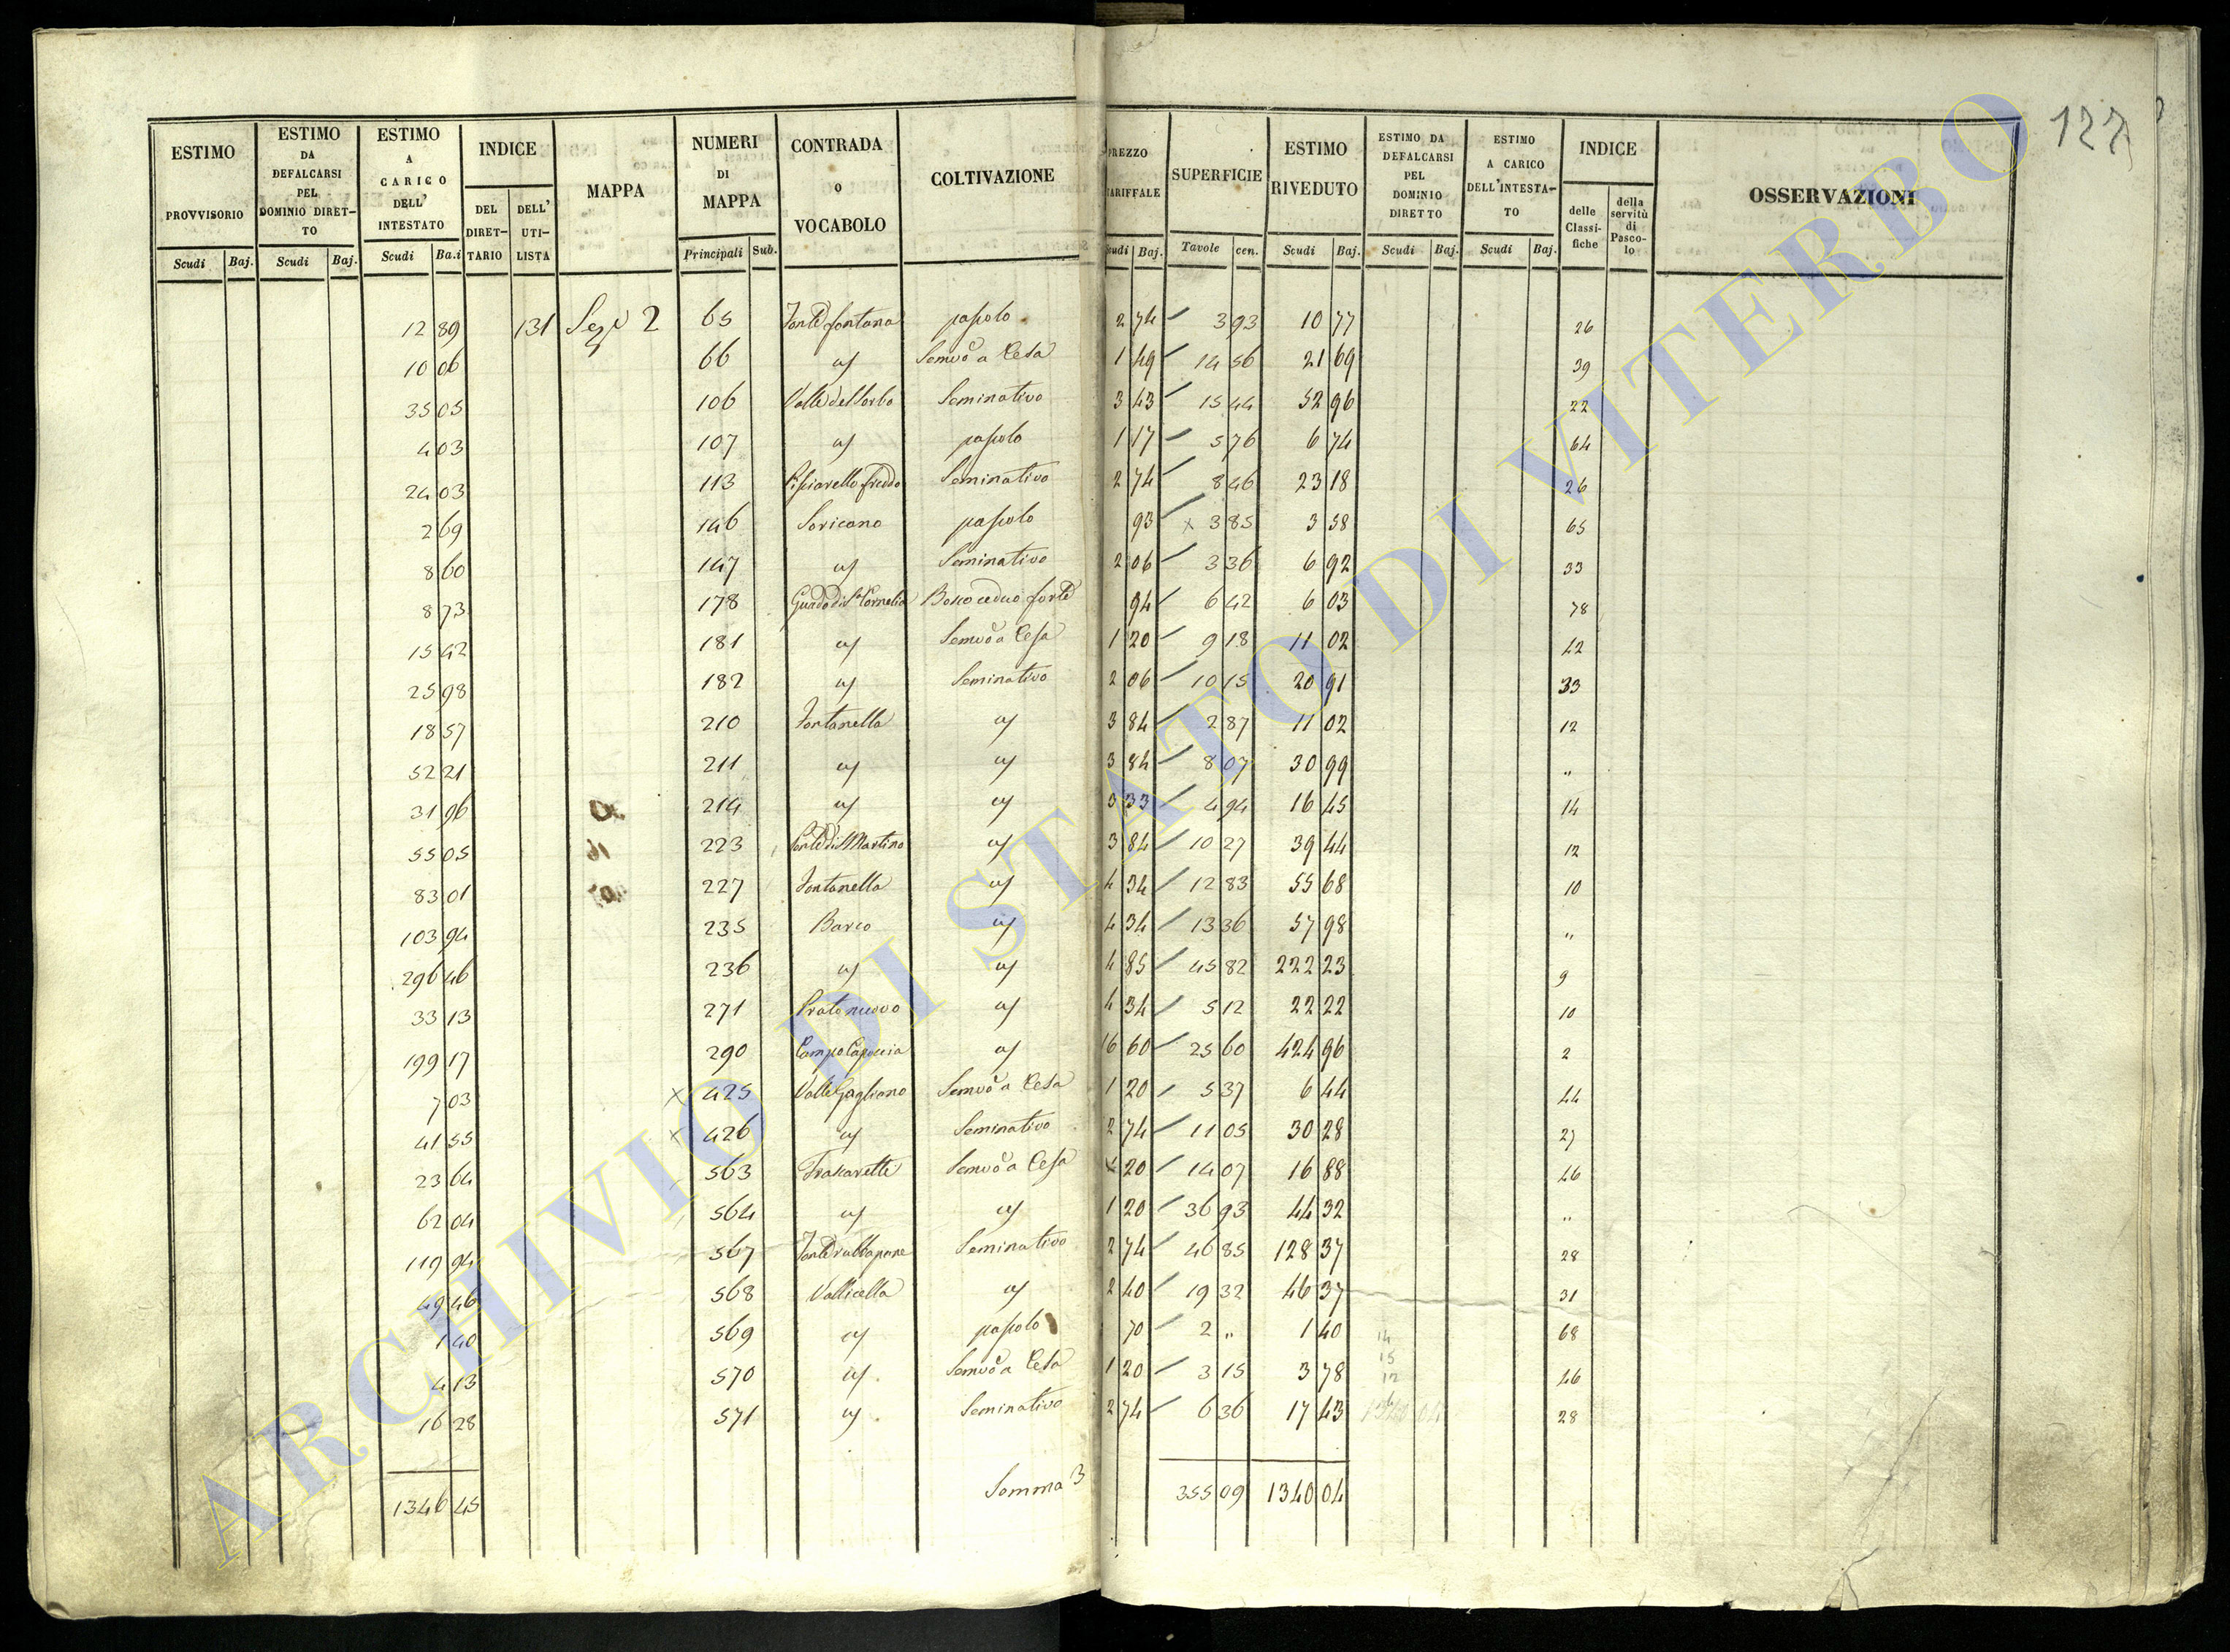 127
ESTIMO PROVVISORIO Scudi Baj.
ESTIMO DA DEFALCARSI PEL DOMINIO DIRET- TO Scudi Baj.
ESTIMO A CARICO DELL' INTESTATO Scudi Ba.i
INDICE DEL DIRET- TARIO DELL' UTI- LISTA
MAPPA
NUMERI DI MAPPA Principali Sub.
CONTRADA O VOCABOLO
COLTIVAZIONE
PREZZO TARIFFALE Scudi Baj.
SUPERFICIE Tavole cen.
ESTIMO RIVEDUTO Scudi Baj.
ESTIMO DA DEFALCARSI PEL DOMINIO DIRETTO Scudi Baj.
ESTIMO A CARICO DELL'INTESTA- TO Scudi Baj.
INDICE delle Classi- fiche della servitù di Pasco- lo
OSSERVAZIONI
12 89 131 2 65 Fonte fontana pascolo 2 74 3 93 10 77 26
10 06 66 Semvo a Cesa 1 49 14 56 21 69 39
35 05 106 Valle del Sorbo Seminativo 3 43 15 44 52 96 22
4 03 107 pascolo 1 17 5 76 6 74 64
24 03 113 Pisciarello freddo Seminativo 2 74 8 46 23 18 26
2 69 146 Soricano pascolo 93 x 3 85 3 58 65
8 60 147 Seminativo 2 06 3 36 6 92 33
8 73 178 Guado di S. Cornelia Bosco ceduo forte 94 6 42 6 03 78
15 42 181 Semvo a Cesa 1 20 9 18 11 02 42
25 98 182 Seminativo 2 06 10 15 20 91 33
18 57 210 Fontanella 3 84 2 87 11 02 12
52 21 211 3 84 8 07 30 99 "
31 96 214 3 33 4 94 16 45 14
55 05 223 Ponte di S Martino 3 84 10 27 39 44 12
83 01 227 Fontanella 4 34 12 83 55 68 10
103 94 235 Barco 4 34 13 36 57 98 "
296 46 236 4 85 45 82 222 23 9
33 13 271 Prato nuovo 4 34 5 12 22 22 10
199 17 290 Campo Capoccia 16 60 25 60 424 96 2
7 03 x 425 Valle Gagliano Semvo a Cesa 1 20 5 37 6 44 44
41 55 x 426 Seminativo 2 74 11 05 30 28 27
23 64 563 Frascarette Semvo a Cesa 1 20 14 07 16 88 46
62 04 564 1 20 36 93 44 32 "
119 94 567 Seminativo 2 74 46 85 128 37 28
49 46 568 Vallicella 2 40 19 32 46 37 31
1 40 569 pascolo 70 2 " 1 40 68
4 13 570 Semvo a Cesa 1 20 3 15 3 78 46
16 28 571 Seminativo 2 74 6 36 17 43 28
1346 45 Somma 3 355 09 1340 04
ARCHIVIO DI STATO DI VITERBO